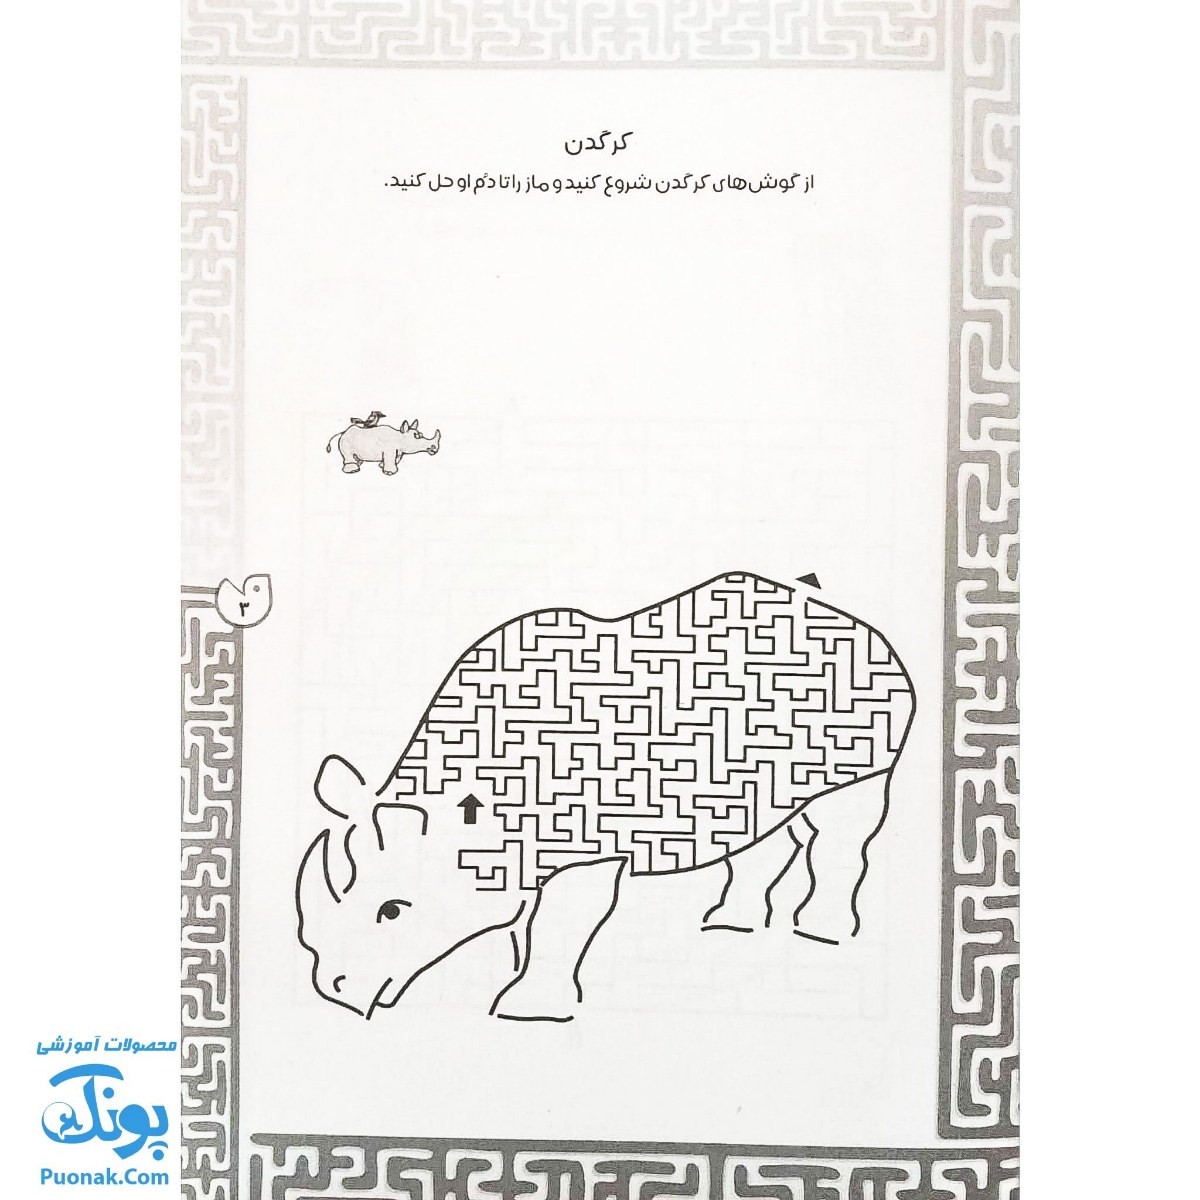 کرگدن
از گوش‌های کرگدن شروع کنید و ماز را تا دُم او حل کنید.
۳
محصولات آموزشی
پونک
Puonak.Com